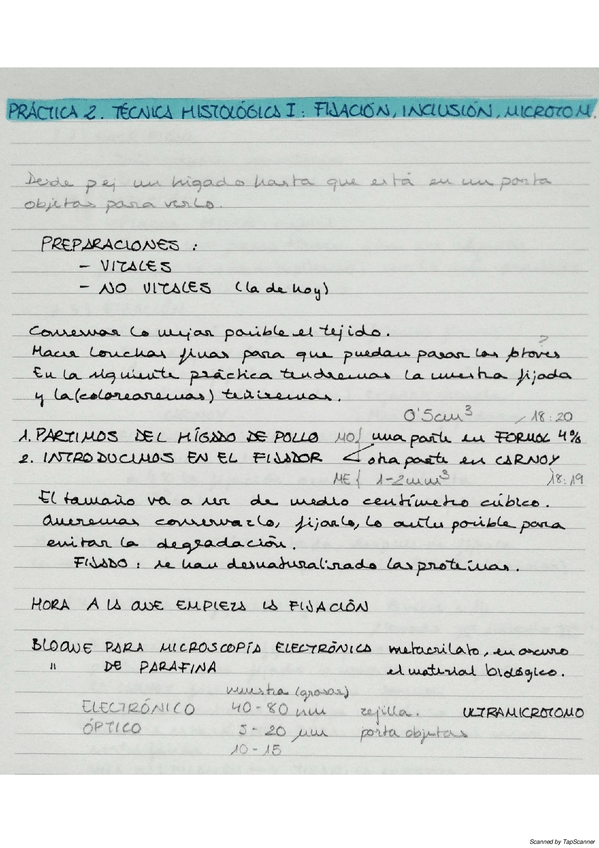 PRÁCTICA 2. TÉCNICA HISTOLÓGICA I: FIJACIÓN, INCLUSIÓN, MICROTOM.
Desde p ej un hígado hasta que está en un porta
objetos para verlo.
PREPARACIONES:
- VITALES
- NO VITALES (la de hoy)
Conservar lo mejor posible el tejido.
?
Hacer lonchas finas para que puedan pasar los
En la siguiente práctica tendremos la muestra fijada
y la (colorearemos) teñiremos.
0'5cm³ 18:20
1. PARTIMOS DEL HÍGADO DE POLLO MO{ una parte en FORMOL 4%
2. INTRODUCIMOS EN EL FIJADOR otra parte en CARNOY
ME{ 1-2mm³ 18:19
El tamaño va a ser de medio centímetro cúbico.
Queremos conservarlo, fijarlo, lo antes posible para
evitar la degradación.
FIJADO: se han desnaturalizado las proteínas.
HORA A LA QUE EMPIEZA LA FIJACIÓN
BLOQUE PARA MICROSCOPÍA ELECTRÓNICA metacrilato, en oscuro
" DE PARAFINA el material biológico.
muestra (grosor)
ELECTRÓNICO 40-80 nm rejilla. ULTRAMICROTOMO
ÓPTICO 5-20 µm porta objetos
10-15
Scanned by TapScanner